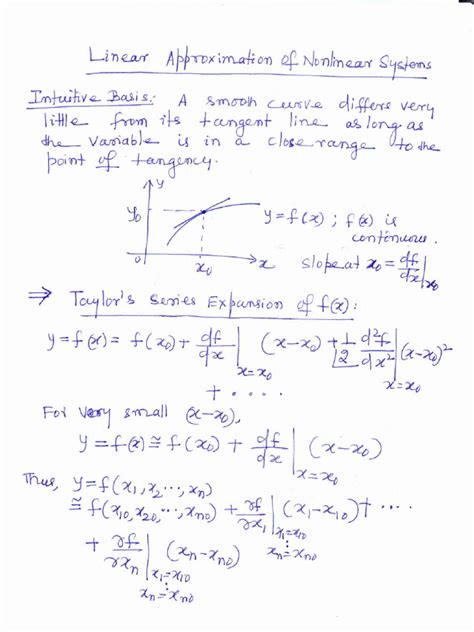 Linear Approximation of Nonlinear Systems
Intuitive Basis: A smooth curve differs very
little from its tangent line as long as
the variable is in a close range to the
point of tangency.
y
y0
y = f(x) ; f(x) is
continuous.
0
x0
x
slope at x0 = df/dx |x0
⇒ Taylor's Series Expansion of f(x):
y = f(x) = f(x0) + df/dx |x=x0 (x-x0) + 1/2 d²f/dx² |x=x0 (x-x0)²
+ ....
For very small (x-x0),
y = f(x) ≅ f(x0) + df/dx |x=x0 (x-x0)
Thus, y = f(x1, x2 ..., xn)
≅ f(x10, x20, ..., xn0) + ∂f/∂x1 |x1=x10 ⋮ xn=xn0 (x1-x10) + ....
+ ∂f/∂xn |x1=x10 ⋮ xn=xn0 (xn-xn0)